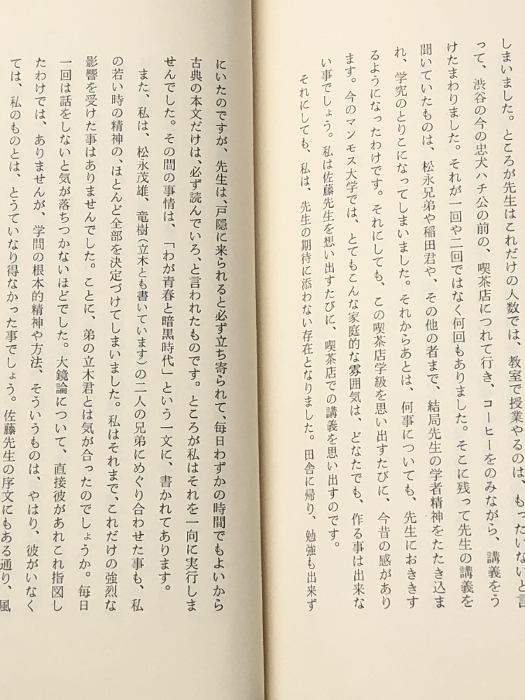 しまいました。ところが先生はこれだけの人数では、教室で授業やるのは、もったいないと言
って、渋谷の今の忠犬ハチ公の前の、喫茶店につれて行き、コーヒーをのみながら、講義をう
けたまわりました。それが一回や二回ではなく何回もありました。そこに残って先生の講義を
聞いていたものは、松永兄弟や稲田君や、その他の者まで、結局先生の学者精神をたたき込ま
れ、学究のとりこになってしまいました。それからあとは、何事についても、先生におききす
るようになったわけです。それにしても、この喫茶店学級を思い出すたびに、今昔の感があり
ます。今のマンモス大学では、とてもこんな家庭的な雰囲気は、どなたでも、作る事は出来な
い事でしょう。私は佐藤先生を想い出すたびに、喫茶店での講義を思い出すのです。
それにしても、私は、先生の期待に添わない存在となりました。田舎に帰り、勉強も出来ず
にいたのですが、先生は、戸隠に来られると必ず立ち寄られて、毎日わずかの時間でもよいから
古典の本文だけは、必ず読んでいろ、と言われたものです。ところが私はそれを一向に実行しま
せんでした。その間の事情は、「わが青春と暗黒時代」という一文に、書かれてあります。
また、私は、松永茂雄、竜樹(立木とも書いています)の二人の兄弟にめぐり合わせた事も、私
の若い時の精神の、ほとんど全部を決定づけてしまいました。私はそれまで、これだけの強烈な
影響を受けた事はありませんでした。ことに、弟の立木君とは気が合ったのでしょうか。毎日
一回は話をしないと気が落ちつかないほどでした。大鏡論について、直接彼があれこれ指図し
たわけでは、ありませんが、学問の根本的精神や方法、そういうものは、やはり、彼がいなく
ては、私のものとは、とうていなり得なかった事でしょう。佐藤先生の序文にもある通り、風